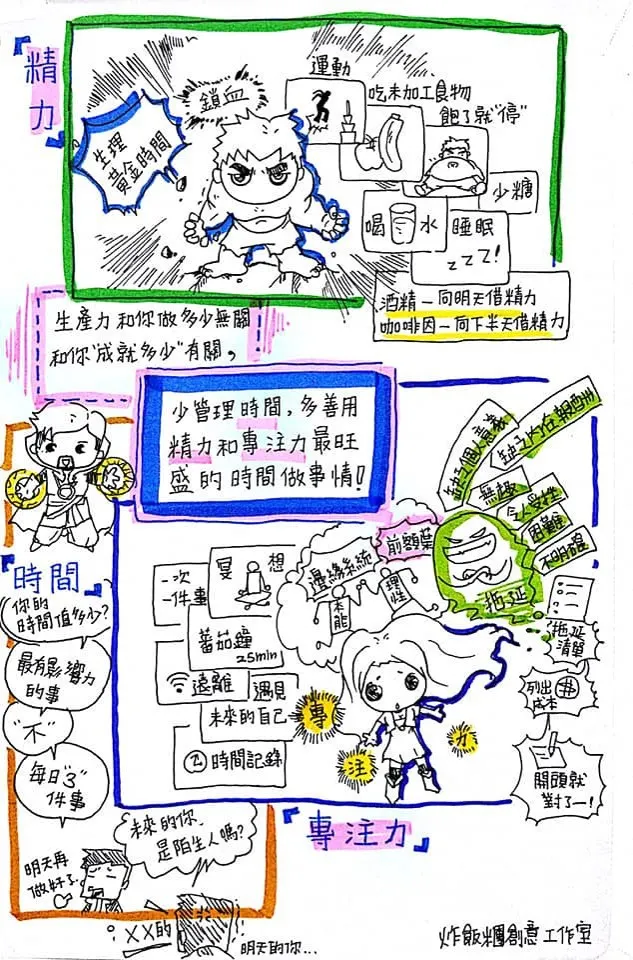 『精力』
生理
黃金時間
鎖血
運動
吃未加工食物
飽了就"停"
少糖
喝水
睡眠
zzz!
酒精—向明天借精力
咖啡因—向下半天借精力
生產力和你做多少無關
和你"成就多少"有關,
少管理時間,多善用
精力和專注力最旺
盛的時間做事情!
缺乏個人意義
缺乏內在報酬
無趣
令人受挫
困難
不明確
拖延
拖延
清單
列出
成本
開頭就
對了一!
前額葉
邊緣系統
理性
本能
一次
一件事
冥想
蕃茄鐘
25min
遠離
遇見
未來的自己
時間記錄
專
注
力
『專注力』
『時間』
你的
時間值多少?
最有影響力
的事
"不"
每日"3"
件事
未來的你
是陌生人嗎?
明天再
做好了
:XX的
明天的你...
炸飯糰創意工作室